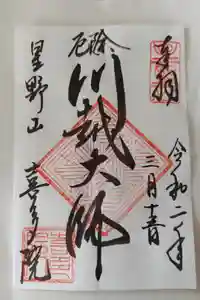 奉拝
令和二年
三月十一日
厄除
川越大師
星野山
喜多院